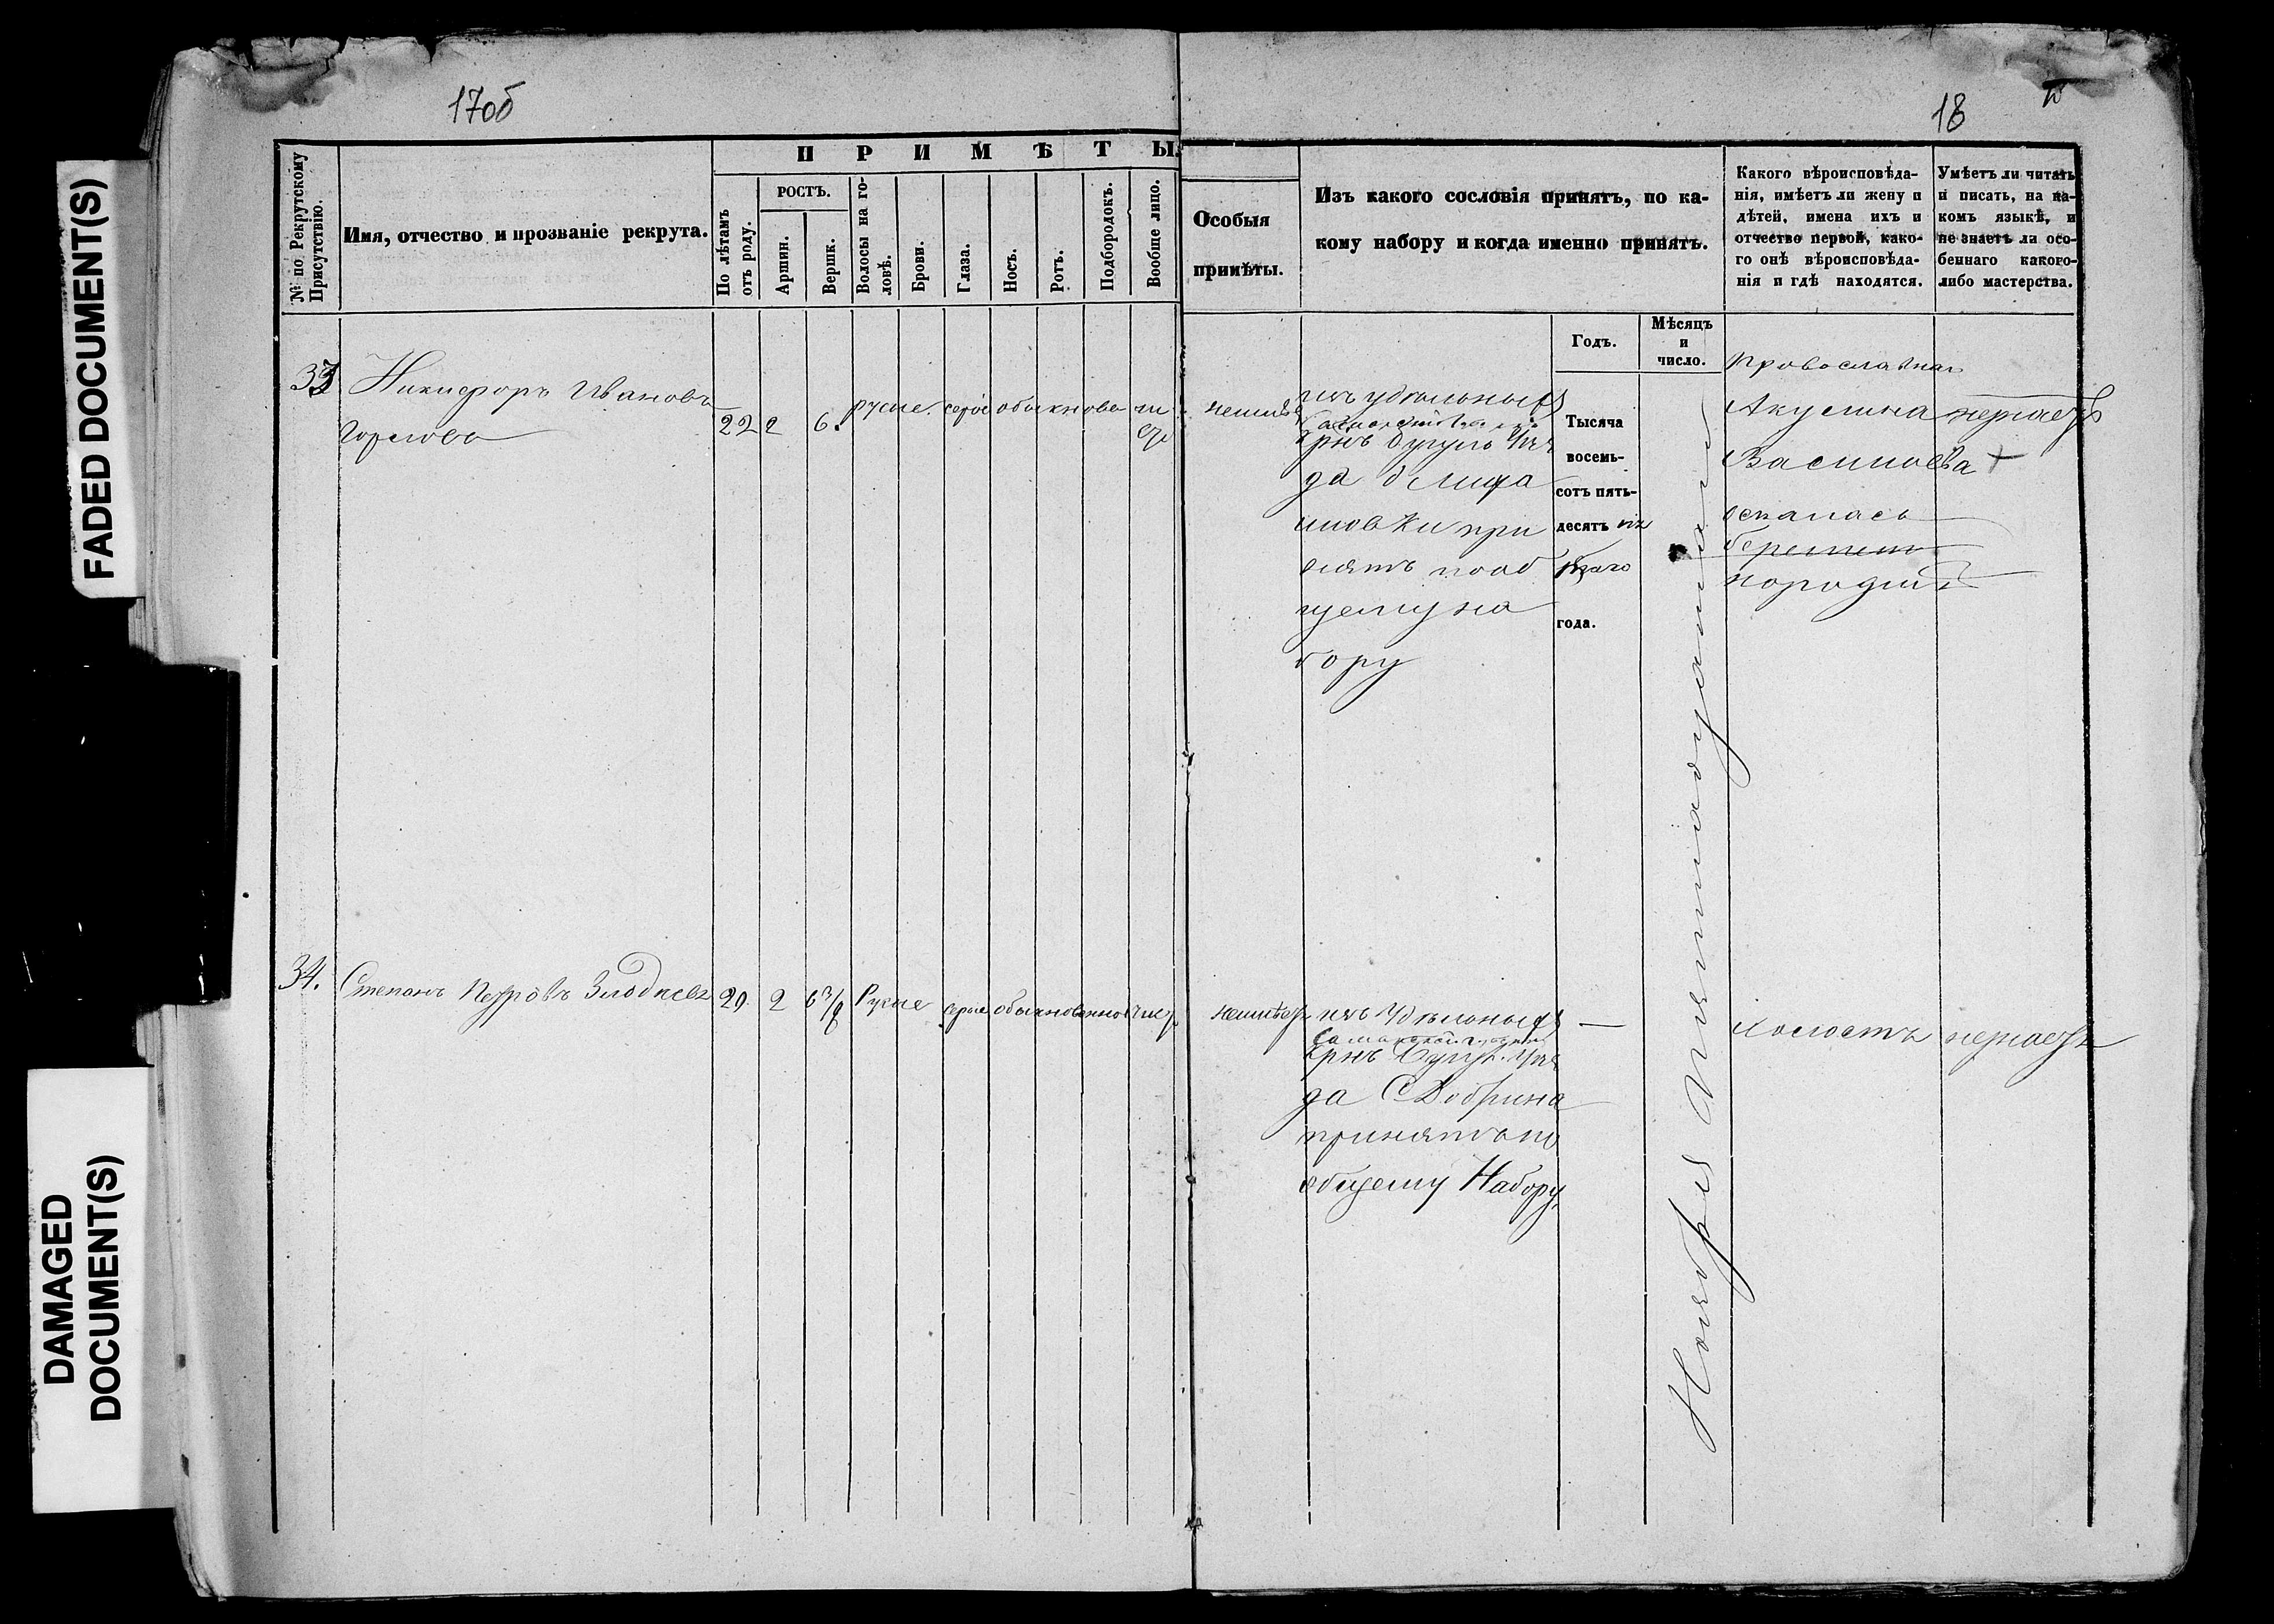 FADED DOCUMENT(S)
DAMAGED
DOCUMENT(S)
17об
18
№ по Рекрутскому
Присутствію.
Имя, отчество и прозваніе рекрута.
ПРИМѢТЫ.
По лѣтамъ
отъ роду.
РОСТЪ.
Аршин.
Вершк.
Волосы на го-
ловѣ.
Брови.
Глаза.
Носъ.
Ротъ.
Подбородокъ.
Вообще лицо.
Особыя
примѣты.
Изъ какого сословія принятъ, по ка-
кому набору и когда именно принятъ.
Какого вѣроисповѣда-
нія, имѣетъ ли жену и
дѣтей, имена ихъ и
отчество первой, како-
го онѣ вѣроисповѣда-
нія и гдѣ находятся.
Умѣетъ ли читать
и писать, на ка-
комъ языкѣ, и
не знаетъ ли осо-
беннаго какого-
либо мастерства.
Годъ.
Мѣсяцъ
и
число.
33
Никифоръ Ивановъ
22 2 6.
русые. серые обыкновен
чи
сто
неимѣетъ
изъ удѣльныхъ
крнъ Бугул. уѣз
да д
новки при
нятъ пооб
щему на
бору
Тысяча
восемь-
сотъ пять-
десятъ
года.
Ноября
православная
Акулина
Василиева
осталась
породинѣ
незнаетъ
34.
Степанъ Петровъ
20. 2 6 3/8 Русые серые обыкновенное чист
неимѣетъ
изъ Удѣльныхъ
Самарской губ
крнъ Бугул. уѣз
да С Добрина
принятъ по
общему Набору.
Холостъ
незнаетъ